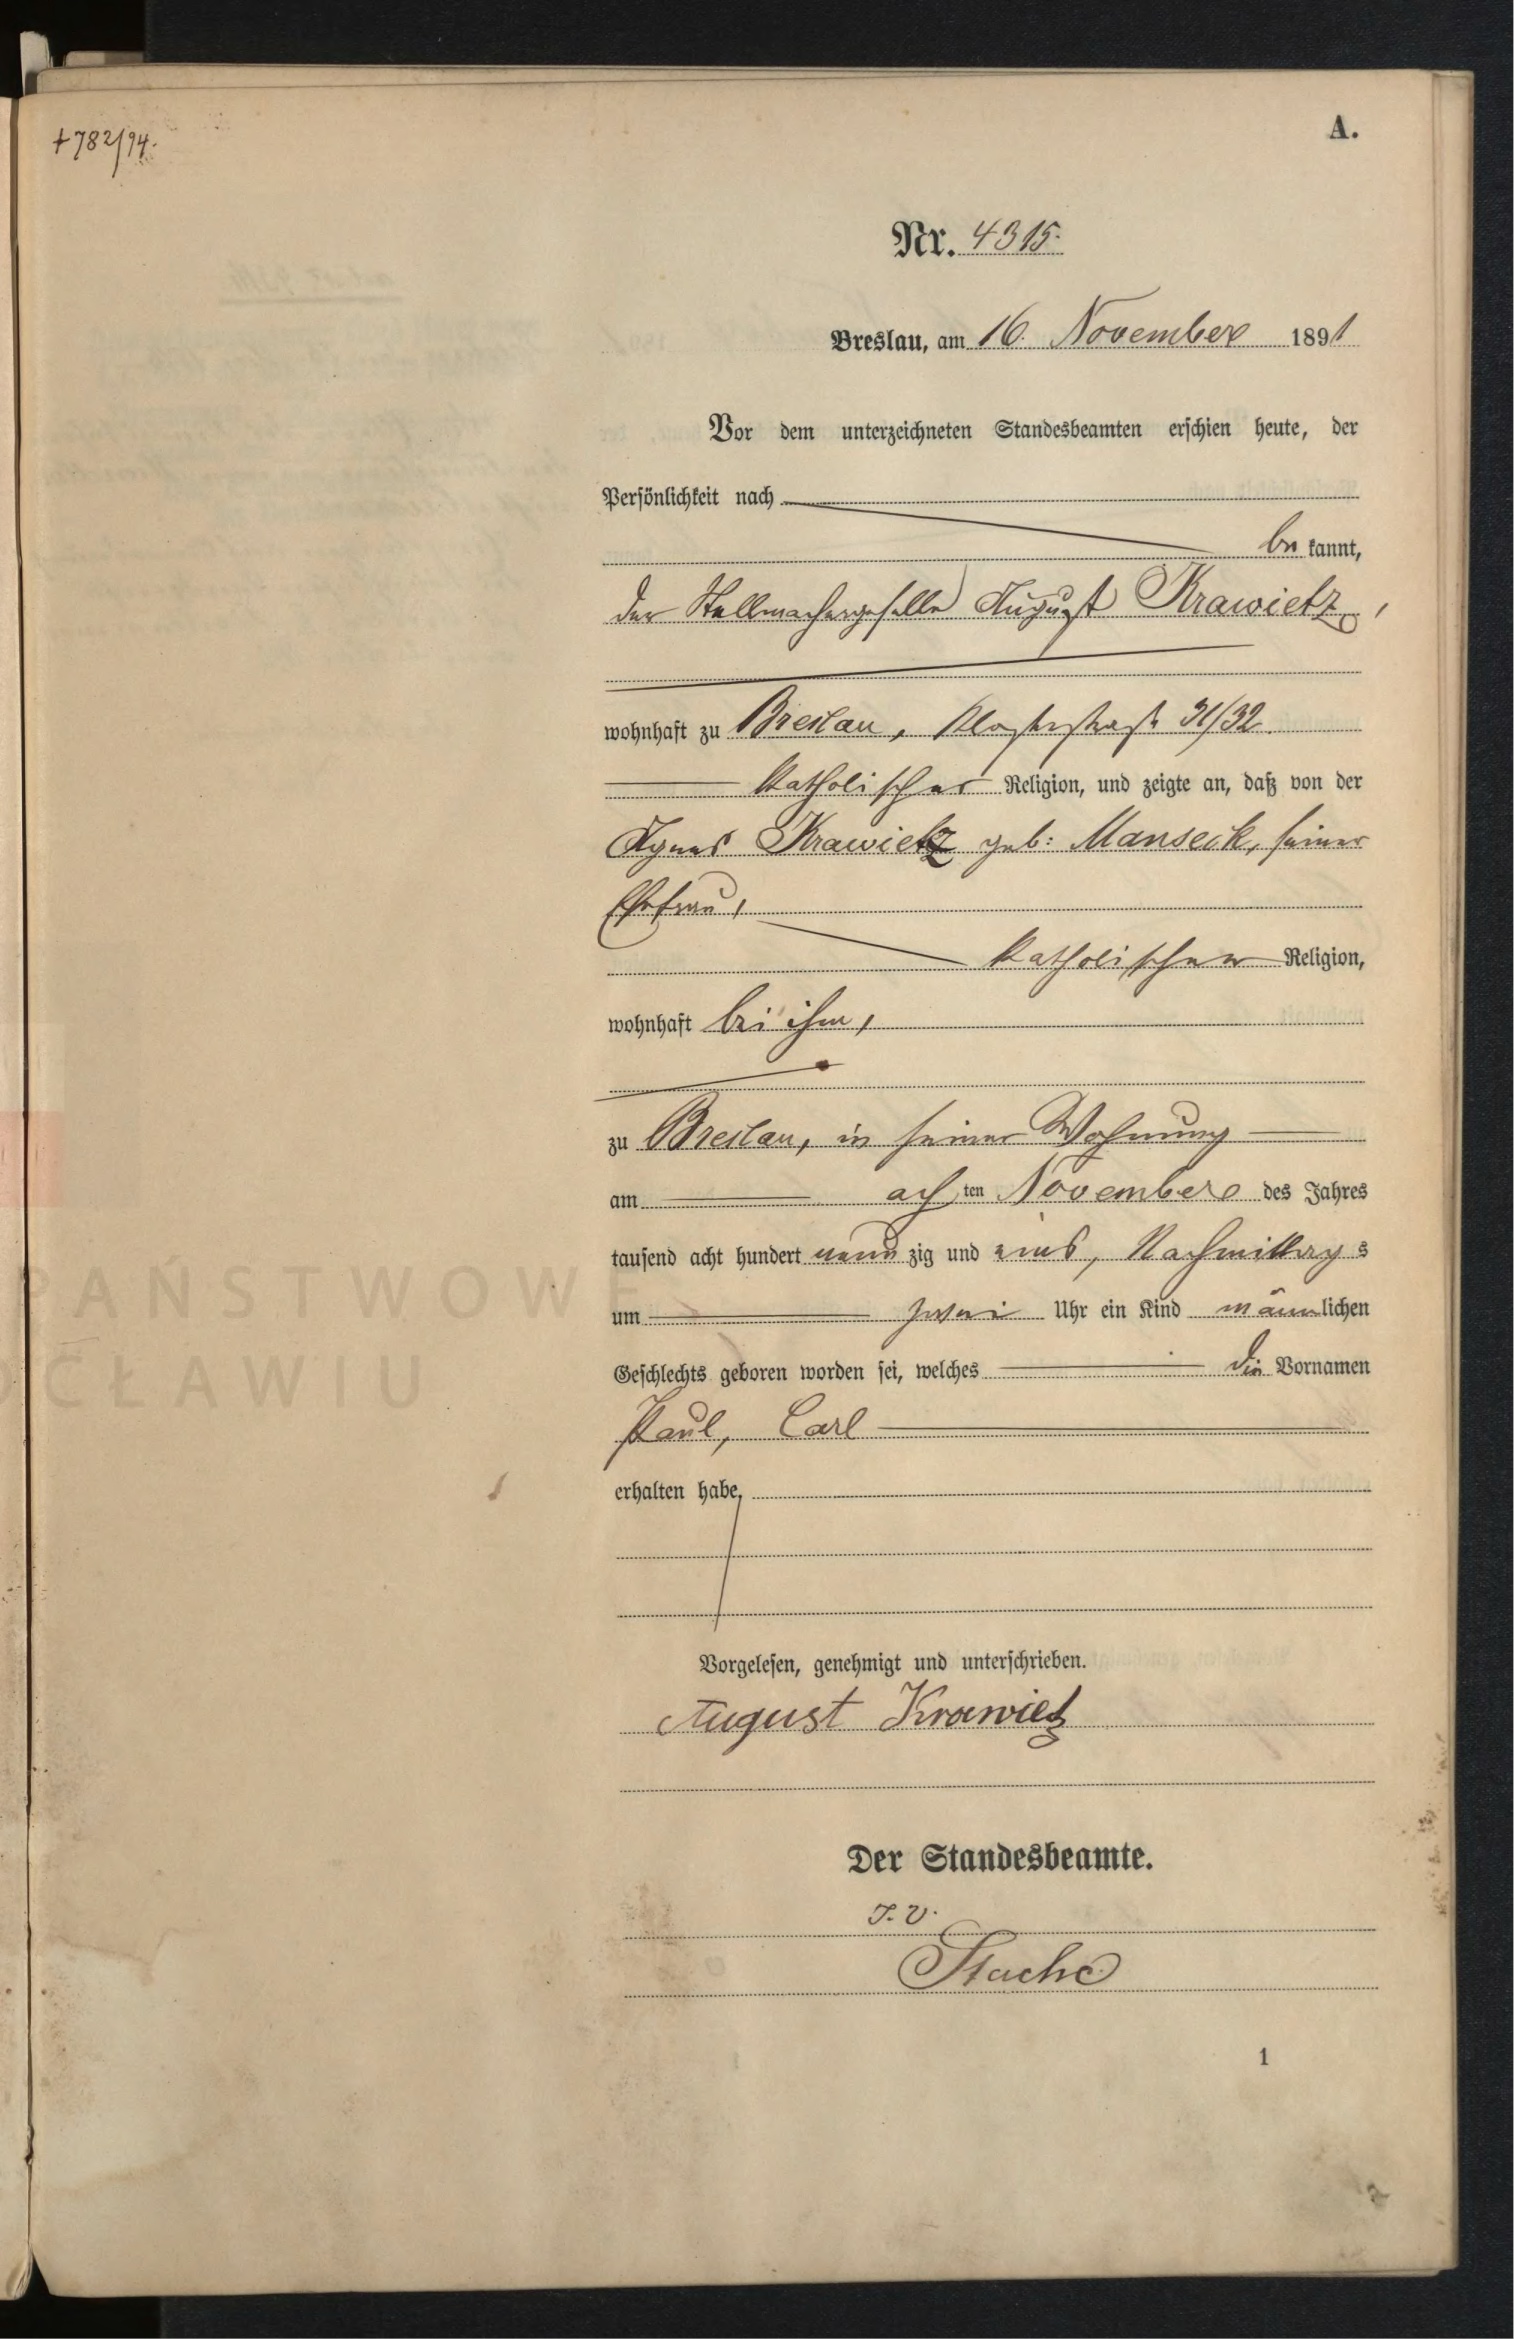 +782/94.
A.
Nr. 4315.
Breslau, am 16. November 1891
Vor dem unterzeichneten Standesbeamten erschien heute, der
Persönlichkeit nach
be kannt,
der Stellmachergeselle August Krawietz,
wohnhaft zu Breslau, Klosterstraße 31/32.
katholischer Religion, und zeigte an, daß von der
Agnes Krawietz geb: Manseck, seiner
Ehefrau,
katholischer Religion,
wohnhaft bei ihm,
zu Breslau, in seiner Wohnung
am ach ten November des Jahres
tausend acht hundert neun zig und eins, Nachmittag s
um zwei Uhr ein Kind männlichen
Geschlechts geboren worden sei, welches die Vornamen
Paul, Carl
erhalten habe,
Vorgelesen, genehmigt und unterschrieben.
August Krawietz
Der Standesbeamte.
J. V.
Stache
1
PAŃSTWOWE
OCŁAWIU